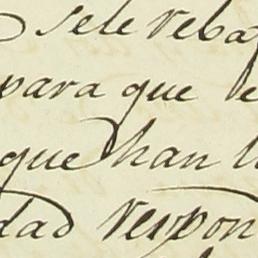 sele reba
para que
que han
dad respon